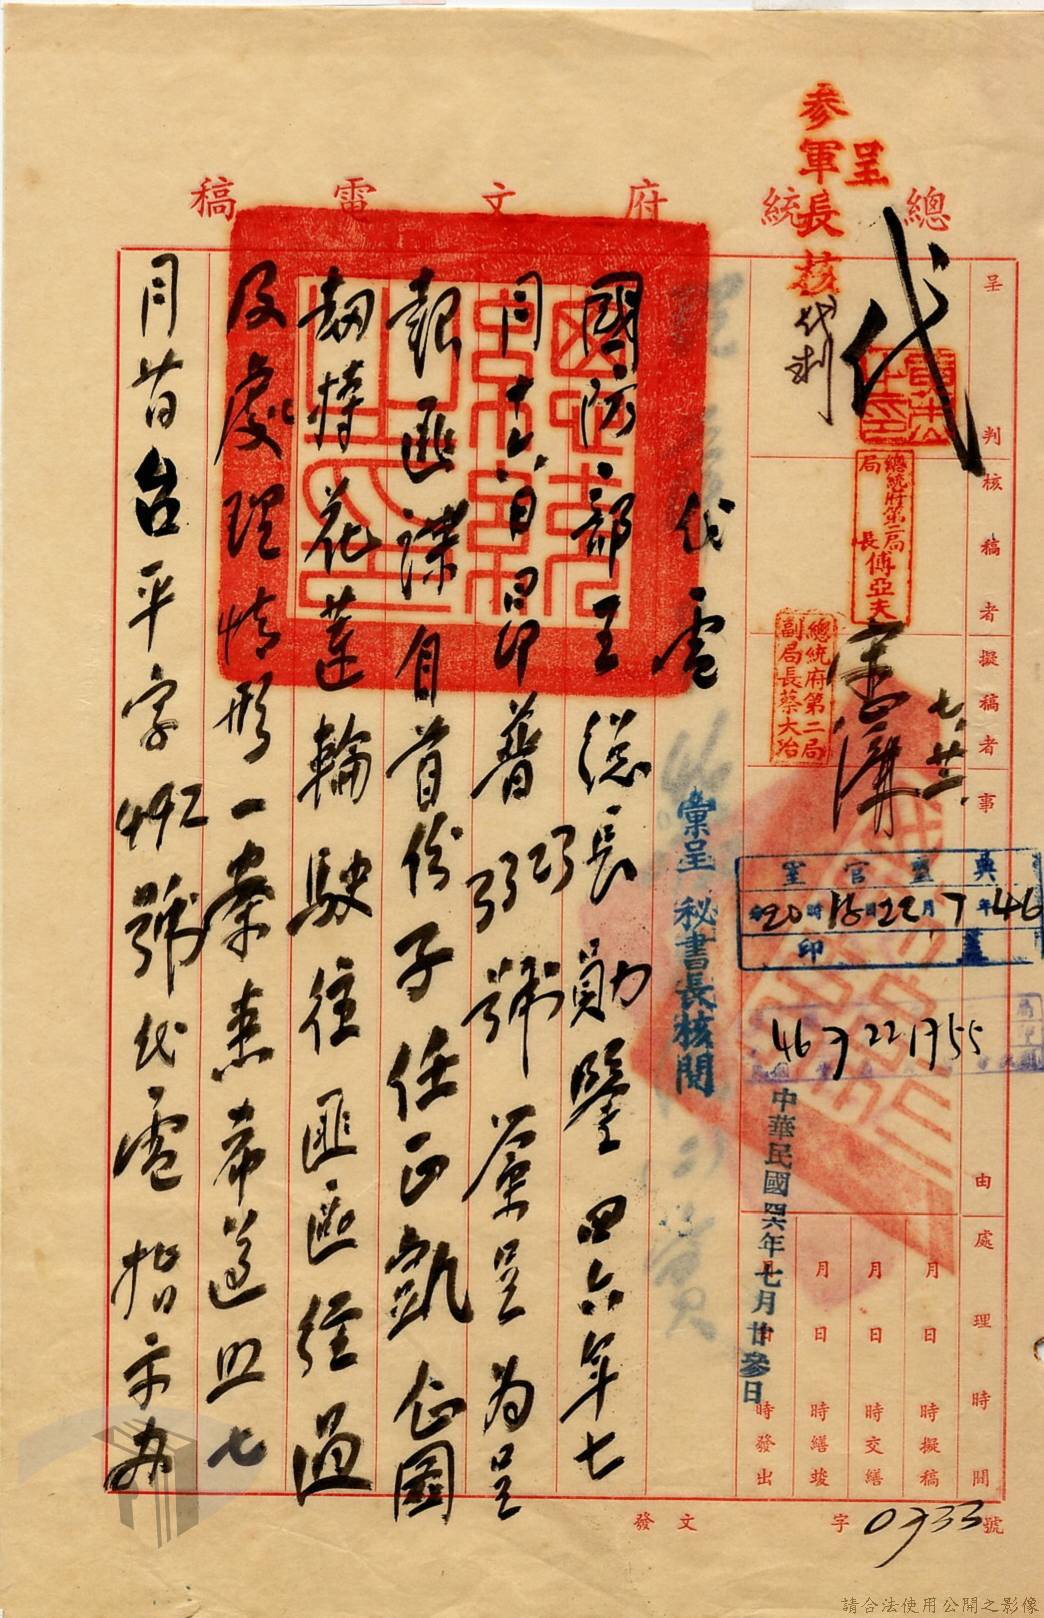 總統府文電稿
呈
參軍長核
代判
代
黃伯度印
總統府第二局
局長傅亞夫
總統府第二局
副局長蔡大冶
七、廿二
呈判
核稿者
擬稿者
事由
處理時間
月日時擬稿
月日時交繕
月日時繕竣
月日時發出
監印官室
46年7月22日18時20分
蓋印
46 7 22 1755
中華民國四六年七月廿參日
彙呈 秘書長核閱
代電
國防部王總長勛鑒四六年七
月十六日昂普弱字號簽呈為呈
報匪諜自首份子任正凱企圖
劫持花蓮輪駛往匪區經過
及處理情形一案悉希遵照七
月哿台平字492號代電指示辦
發文 字0733號
請合法使用公開之影像